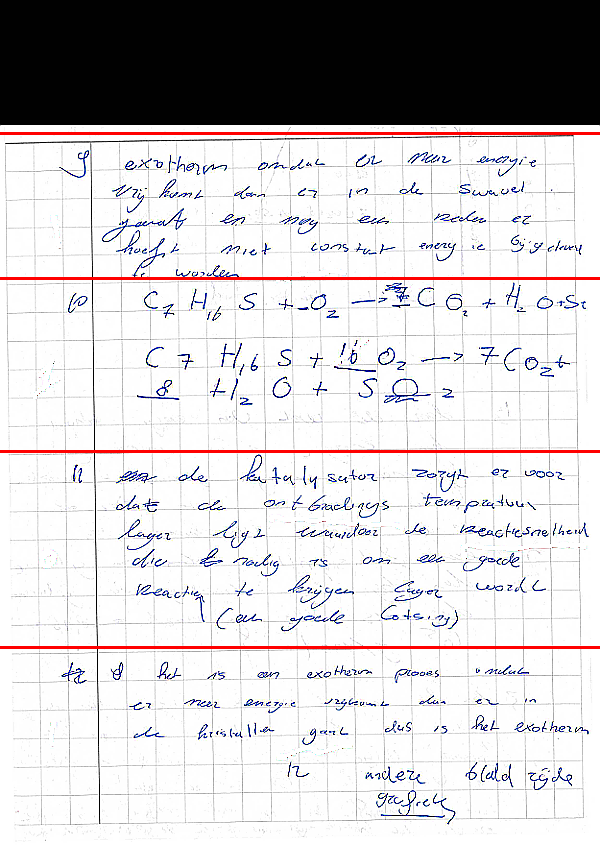 9 exotherm omdat er meer energie
vrij komt dan er in de swavel
gaat en nog een reden er
hoeft niet constant energie bijgeleverd
te worden
10 C7 H16 S + O2 → 7 C O2 + H2 O + S
C 7 H16 S + 16 O2 → 7 CO2 +
8 H2 O + S O 2
11 de katalysator zorgt er voor
dat de ontbradings tempratuur
lager ligt waardoor de reactiesnelheid
die nodig is om een goede
reactie te krijgen lager wordt
(een goede botsing)
12 9 het is een exotherm prooes omdat
er meer energie vrijkomt dan er in
de kristallen gaat dus is het exotherm
12 andere blad zijde
grafiek